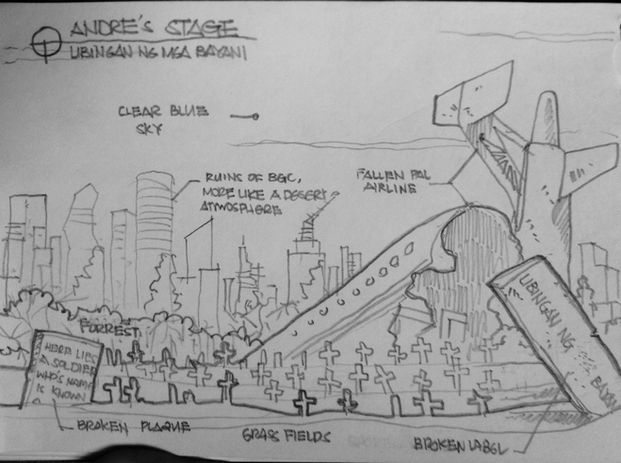 ANDRE'S STAGE
UBINGAN NG MGA BAYANI
CLEAR BLUE
SKY
RUINS OF BGC,
MORE LIKE A DESERT
ATMOSPHERE
FALLEN PAL
AIRLINE
FORREST
HERE LIES
A SOLDIER
WHO'S NAME
IS KNOWN
UBINGAN NG
BROKEN PLAQUE
GRASS FIELDS
BROKEN LABEL